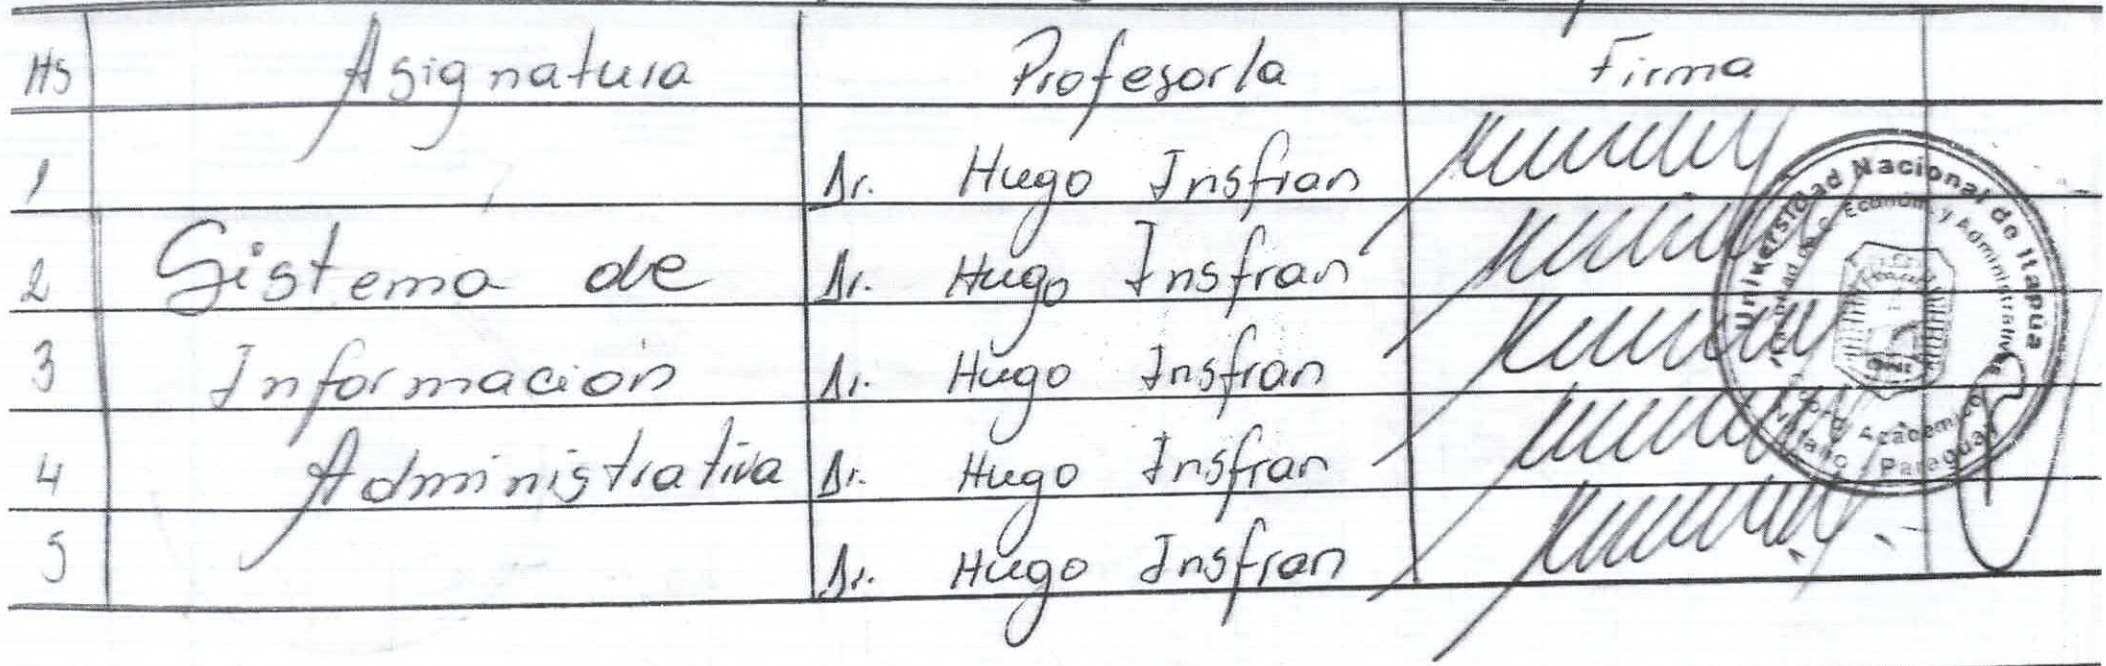 HS Asignatura Profesor/a Firma
1 Dr. Hugo Insfran
2 Sistema de Dr. Hugo Insfran
3 Información Dr. Hugo Insfran
4 Administrativa Dr. Hugo Insfran
5 Dr. Hugo Insfran
Universidad Nacional de Itapúa
Económ. y Administrativas
Académico
Paraguay